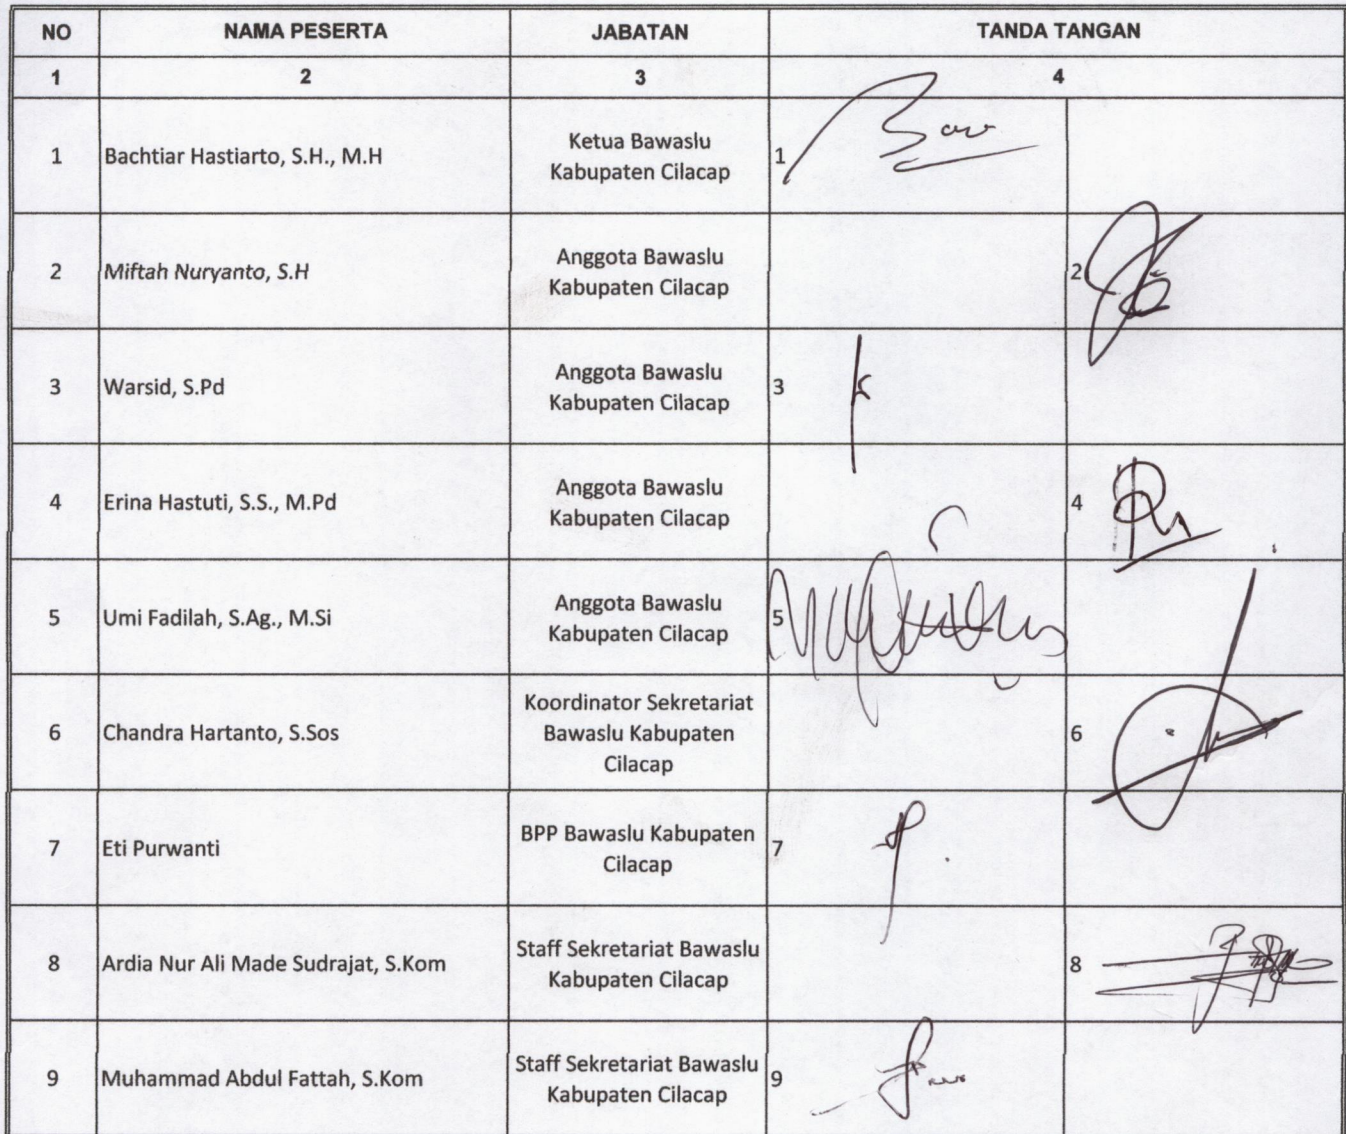 NO NAMA PESERTA JABATAN TANDA TANGAN
1 2 3 4
1 Bachtiar Hastiarto, S.H., M.H Ketua Bawaslu
Kabupaten Cilacap 1
2 Miftah Nuryanto, S.H Anggota Bawaslu
Kabupaten Cilacap 2
3 Warsid, S.Pd Anggota Bawaslu
Kabupaten Cilacap 3
4 Erina Hastuti, S.S., M.Pd Anggota Bawaslu
Kabupaten Cilacap 4
5 Umi Fadilah, S.Ag., M.Si Anggota Bawaslu
Kabupaten Cilacap 5
6 Chandra Hartanto, S.Sos Koordinator Sekretariat
Bawaslu Kabupaten
Cilacap 6
7 Eti Purwanti BPP Bawaslu Kabupaten
Cilacap 7
8 Ardia Nur Ali Made Sudrajat, S.Kom Staff Sekretariat Bawaslu
Kabupaten Cilacap 8
9 Muhammad Abdul Fattah, S.Kom Staff Sekretariat Bawaslu
Kabupaten Cilacap 9